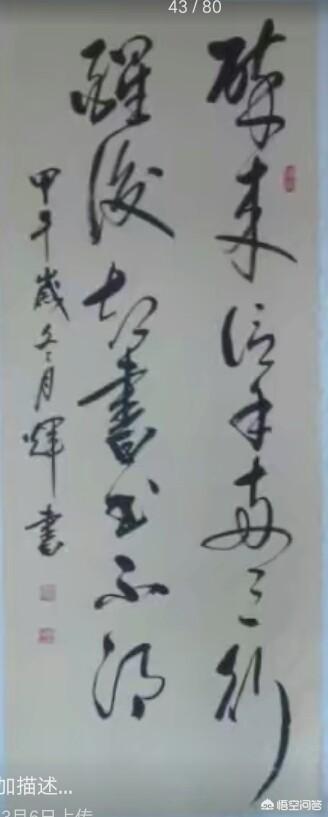 43 / 80
醉来信手两三行
醒後却書書不得
甲午歲冬月輝書
加描述...
3月6日上传
悟空问答